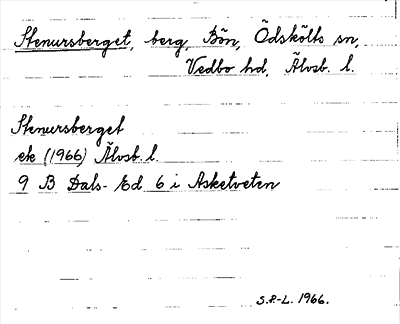 Stenursberget, berg, Bön, Ödskölts sn,
Vedbo hd, Älvsb. l.
Stenursberget
ek (1966) Älvsb. l.
9 B Dals-Ed 6 i Asketveten
S.P.-L. 1966.